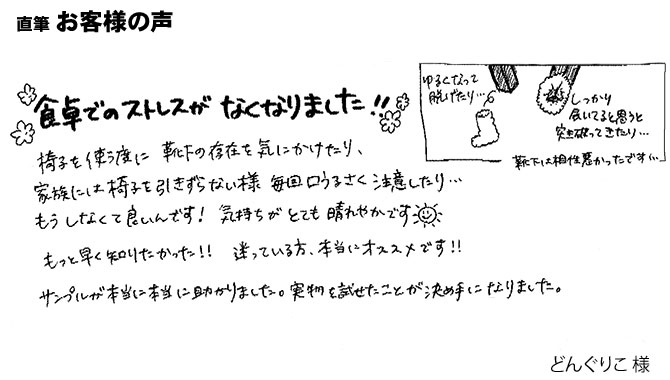 直筆 お客様の声
食卓でのストレスが なくなりました!!
ゆるくなって
脱げたり…
しっかり
突き破ってきたり…
靴下は相性悪かったです…
椅子を使う度に 靴下の存在を気にかけたり、
家族には椅子を引きずらない様 毎回口うるさく注意したり…
もうしなくて良いんです! 気持ちがとても晴れやかです
もっと早く知りたかった!! 迷っている方、本当にオススメです!!
サンプルが本当に本当に助かりました。実物を試せたことが決め手になりました。
どんぐりこ 様